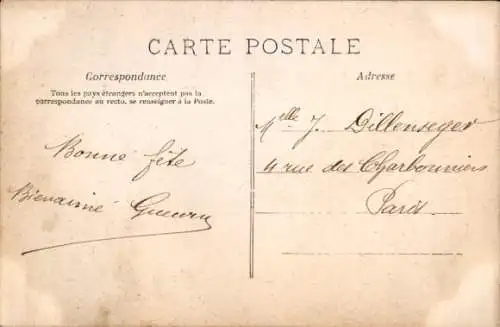 CARTE POSTALE
Correspondance
Tous les pays étrangers n'acceptent pas la
correspondance au recto, se renseigner à la Poste.
Bonne fête
Bienaimé
Adresse
Melle J. Dillenseger
4 rue des Charbonniers
Paris